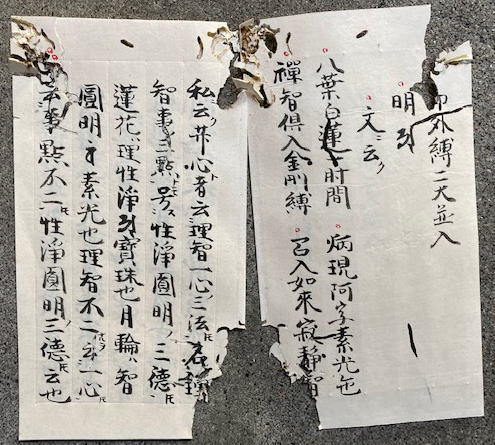 外縛二大並入
明
文云ク
八葉白蓮一肘間 炳現阿字素光色
禪智俱入金剛縛 召入如來寂靜智
私云 心者云理智一心三法
智 三點号ス性淨圓明ノ三德
蓮花ハ理性淨 寶珠也月輪ハ智
圓明 素光也理智不二 一心
點不二性淨圓明三德云也